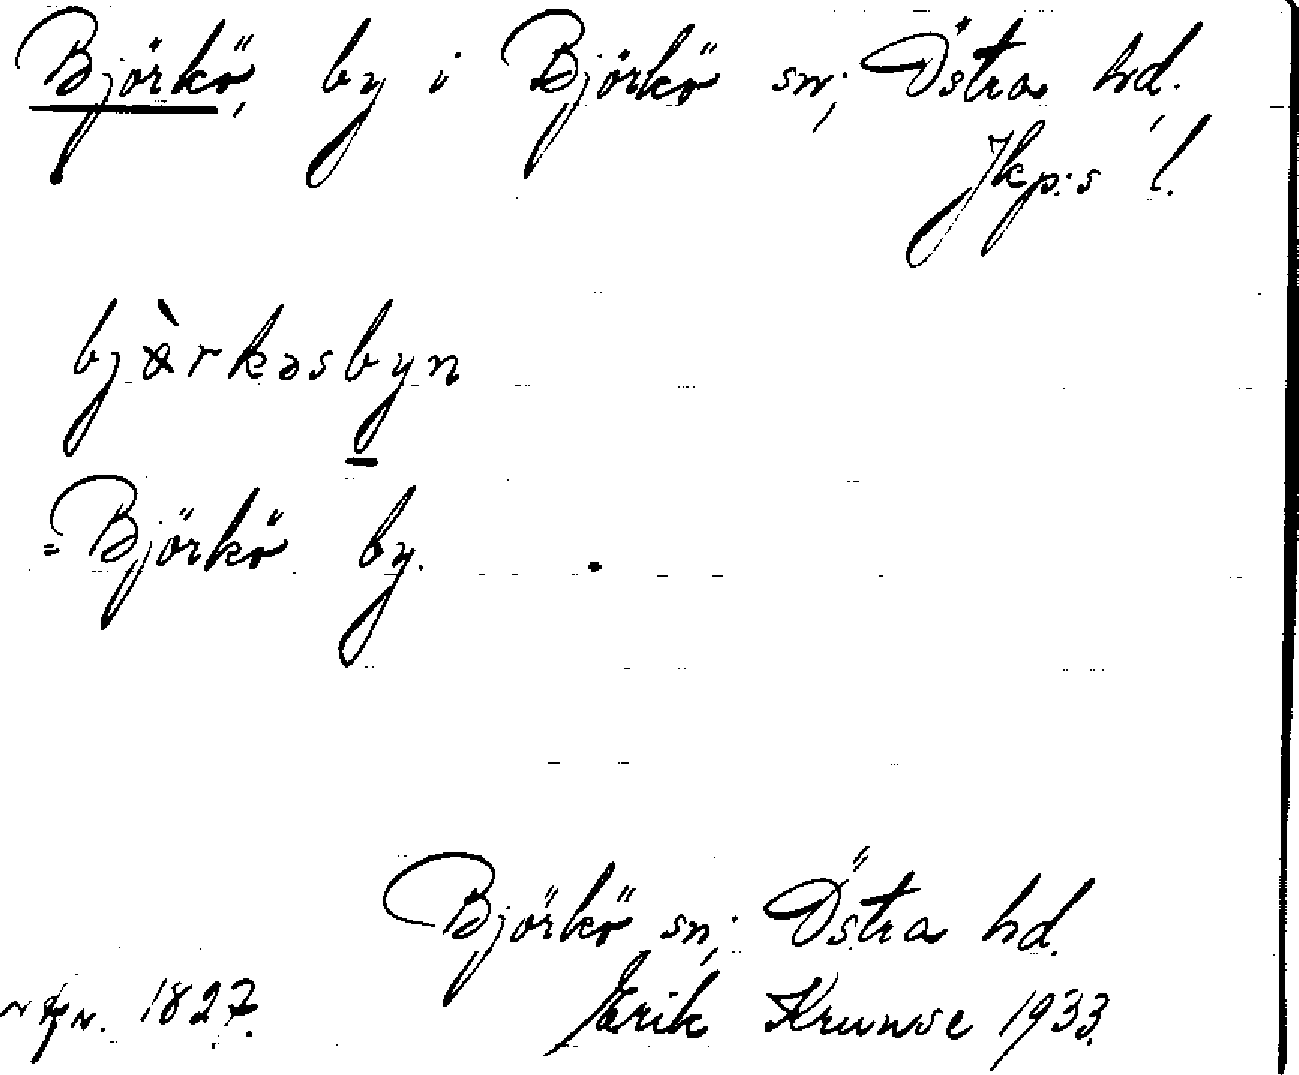 Björkö, by i Björkö sn, Östra hd.,
Jkp:s l.
bjàrkəsbyn
= Björkö by.
Björkö sn, Östra hd.
1827. Erik Krunse 1933.